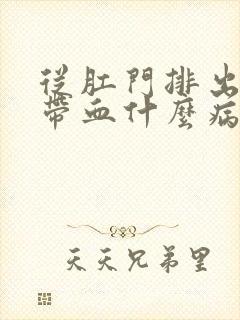 從肛門排出
帶血什麼病
天天兄弟里